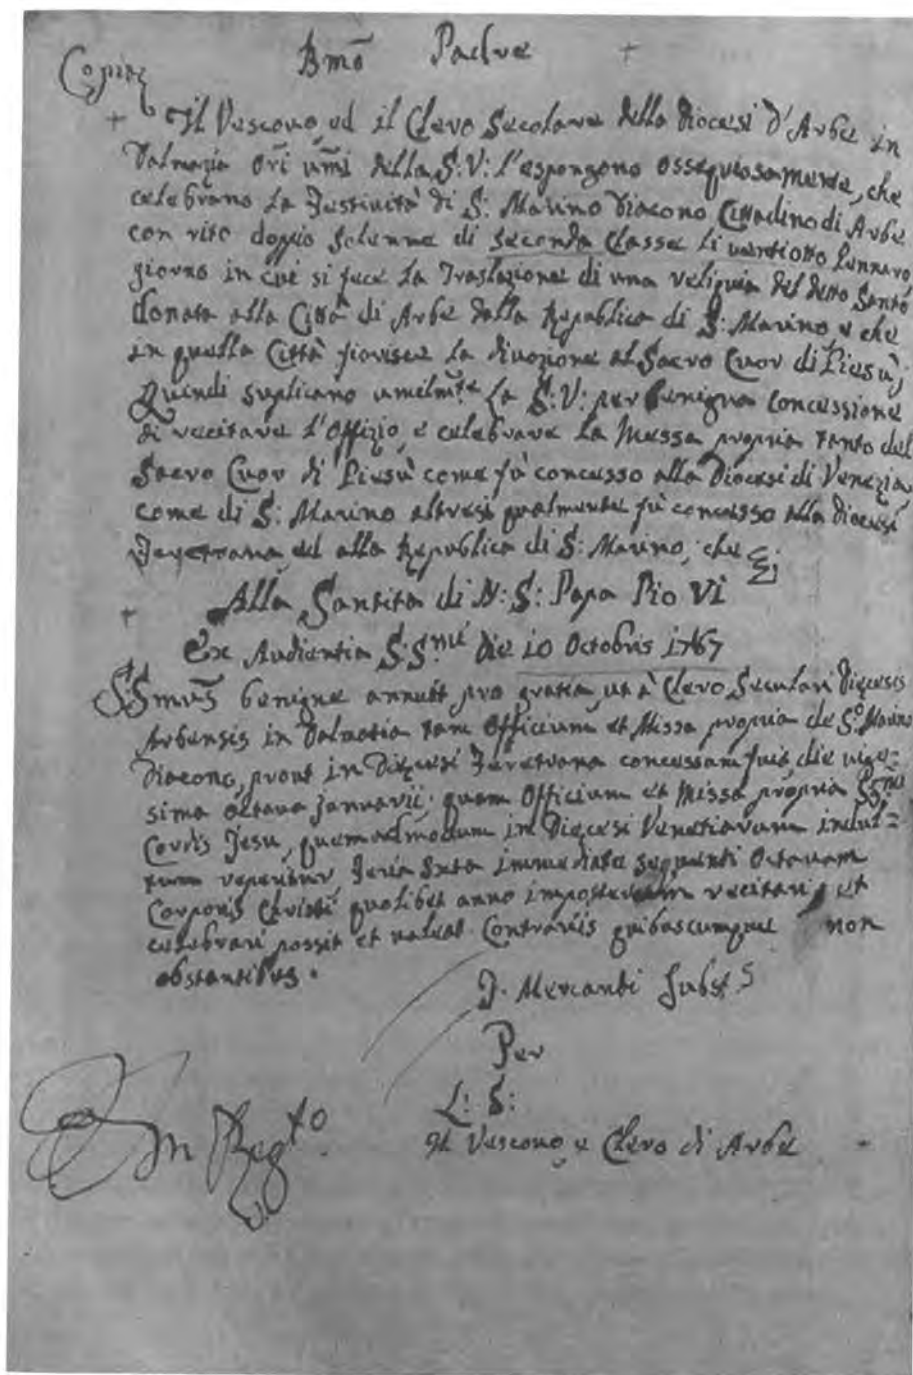 Copia
Bmō Padre
Il Vescovo, ed il Clero Secolare della Diocesi d'Arbe in
Dalmazia Ori umi della S: V: l'espongono ossequiosamente, che
celebrano la Festività di S: Marino Diacono Cittadino di Arbe
con rito doppio solenne di seconda Classe li ventiotto Gennaro
giorno in cui si fece la Traslazione di una reliquia del detto Santo
donata alla Città di Arbe dalla Republica di S: Marino e che
in quella Città fiorisce la divozione al Sacro Cuor di Giesù;
Quindi suplicano umilmte la S: V: per benigna concessione
di recitare l'Offizio, e celebrare la Messa propria tanto del
Sacro Cuor di Giesù come fù concesso alla Diocesi di Venezia,
come di S: Marino altresì qualmente fù concesso alla Diocesi
Feretrana, ed alla Republica di S: Marino; che
Alla Santità di N: S: Papa Pio VI
Ex Audientia S.Smi Die 10 Octobris 1767
SSmus benigne annuit pro gratia, ut à Clero Seculari Diecesis
Arbensis in Dalmatia tam Officium et Missa propria de So Marino
Diacono, prout in Diecesi Feretrana concessam fuit, die vige=
sima octava Januarii; quam Officium et Missa propria SSmi
Cordis Jesu, quemadmodum in Diecesi Venetiarum indul=
tum reperitur, Feria Sexta immediate sequenti Octavam
Corporis Christi quolibet anno imposterum recitari, et
celebrari possit et valeat. Contrariis quibuscumque non
obstantibus.
J. Mercanti Substs
Per
L: S:
Il Vescovo, e Clero di Arbe
In Regto